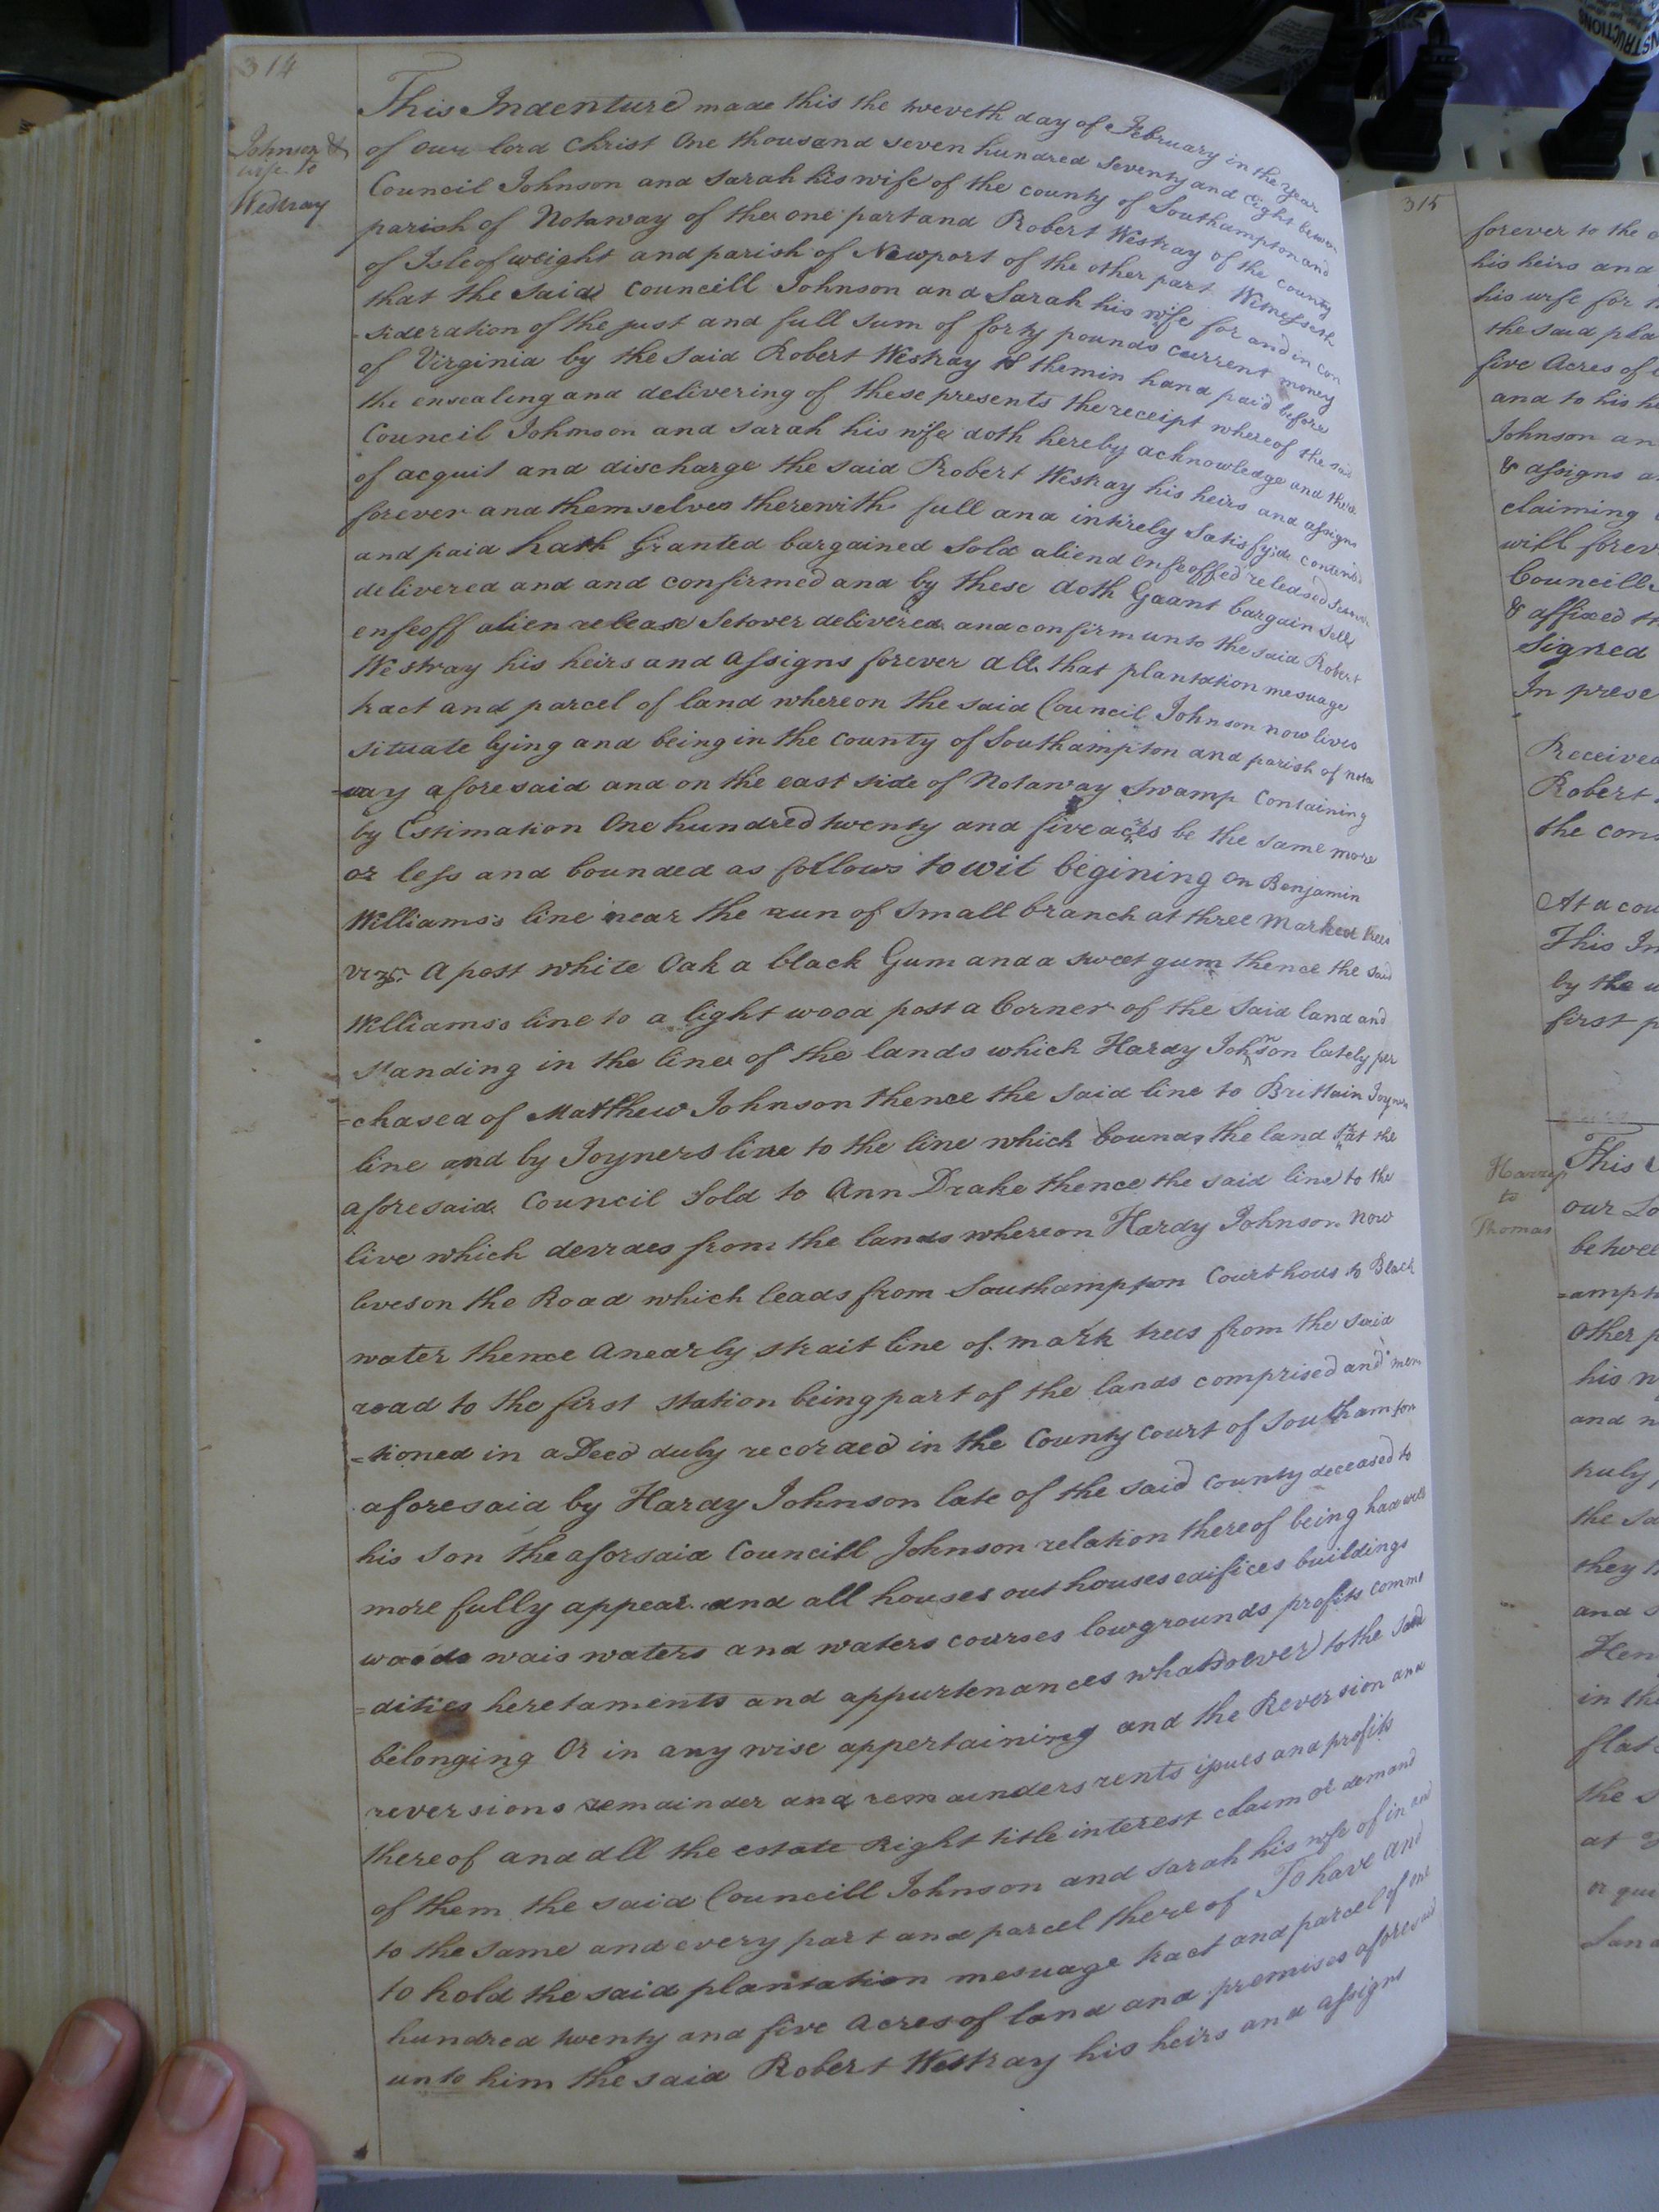 314
Johnson &
wife to
Westray
This Indenture made this the tweveth day of February in the year
of our lord Christ One thousand seven hundred seventy and Eight between
Council Johnson and Sarah his wife of the county of Southampton and
parish of Notaway of the one part and Robert Westray of the County
of Isle of weight and parish of Newport of the other part Witnesseth
that the said Councill Johnson and Sarah his wife for and in con
=sideration of the just and full sum of forty pounds current money
of Virginia by the said Robert Westray to them in hand paid before
the ensealing and delivering of these presents the receipt whereof the said
Council Johnson and Sarah his wife doth hereby acknowledge and there
of acquit and discharge the said Robert Westray his heirs and assigns
forever and themselves therewith full and intirely Satisfyde contented
and paid hath Granted bargained Sold aliend Enfeoffed released
delivered and and confirmed and by these doth Gaant bargain Sell
enfeoff alien release Setover delivered and confirm unto the said Robert
Westray his heirs and assigns forever all that plantation mesuage
tract and parcel of land whereon the said Council Johnson now lives
situate lying and being in the County of Southampton and parish of nota
=way aforesaid and on the east side of Notaway Swamp Containing
by Estimation One hundred twenty and five acres be the same more
or less and bounded as follows to wit begining on Benjamin
Williams's line near the run of Small branch at three Marked trees
viz. A post white Oak a black Gum and a sweet gum thence the said
Williams's line to a light wood post a Corner of the Said land and
standing in the line of the lands which Hardy Johnson lately per
=chased of Matthew Johnson thence the said line to Brittain Joyner
line and by Joyners line to the line which bounds the land that the
aforesaid Council Sold to Ann Drake thence the said line to the
live which devides from the lands whereon Hardy Johnson now
lives on the Road which leads from Southampton Courthous to Black
water thence a nearly strait line of mark trees from the said
road to the first station being part of the lands comprised and men
=tioned in a Deed duly recorded in the County Court of Southamton
aforesaid by Hardy Johnson late of the said County deceased to
his son the aforsaid Councill Johnson relation thereof being had will
more fully appear and all houses out houses edifices buildings
woods wais waters and waters courses lowgrounds profits comme
=dities heretaments and appurtenances whatsoever to the said
belonging Or in any wise appertaining and the Reversion and
reversions remainder and remainders rents issues and profits
thereof and all the estate Right title interest claim or demand
of them the said Councill Johnson and Sarah his wife of in and
to the same and every part and parcel thereof To have and
to hold the said plantation mesuage tract and parcel of one
hundred twenty and five Acres of land and premises aforesaid
unto him the said Robert Westray his heirs and assigns
315
forever to the
his heirs and
his wife for
the said pla
five Acres of
and to his
Johnson an
& assigns
claiming
will forev
Councill
& affixed
Signed
In prese
Received
Robert
the cons
At a cou
This In
by the
first p
Harrup
to
Thomas
This
our Lo
betwee
=ampt
Other p
his
and
truly
the sa
they
and
Hen
in the
flat
the s
at
or
Land